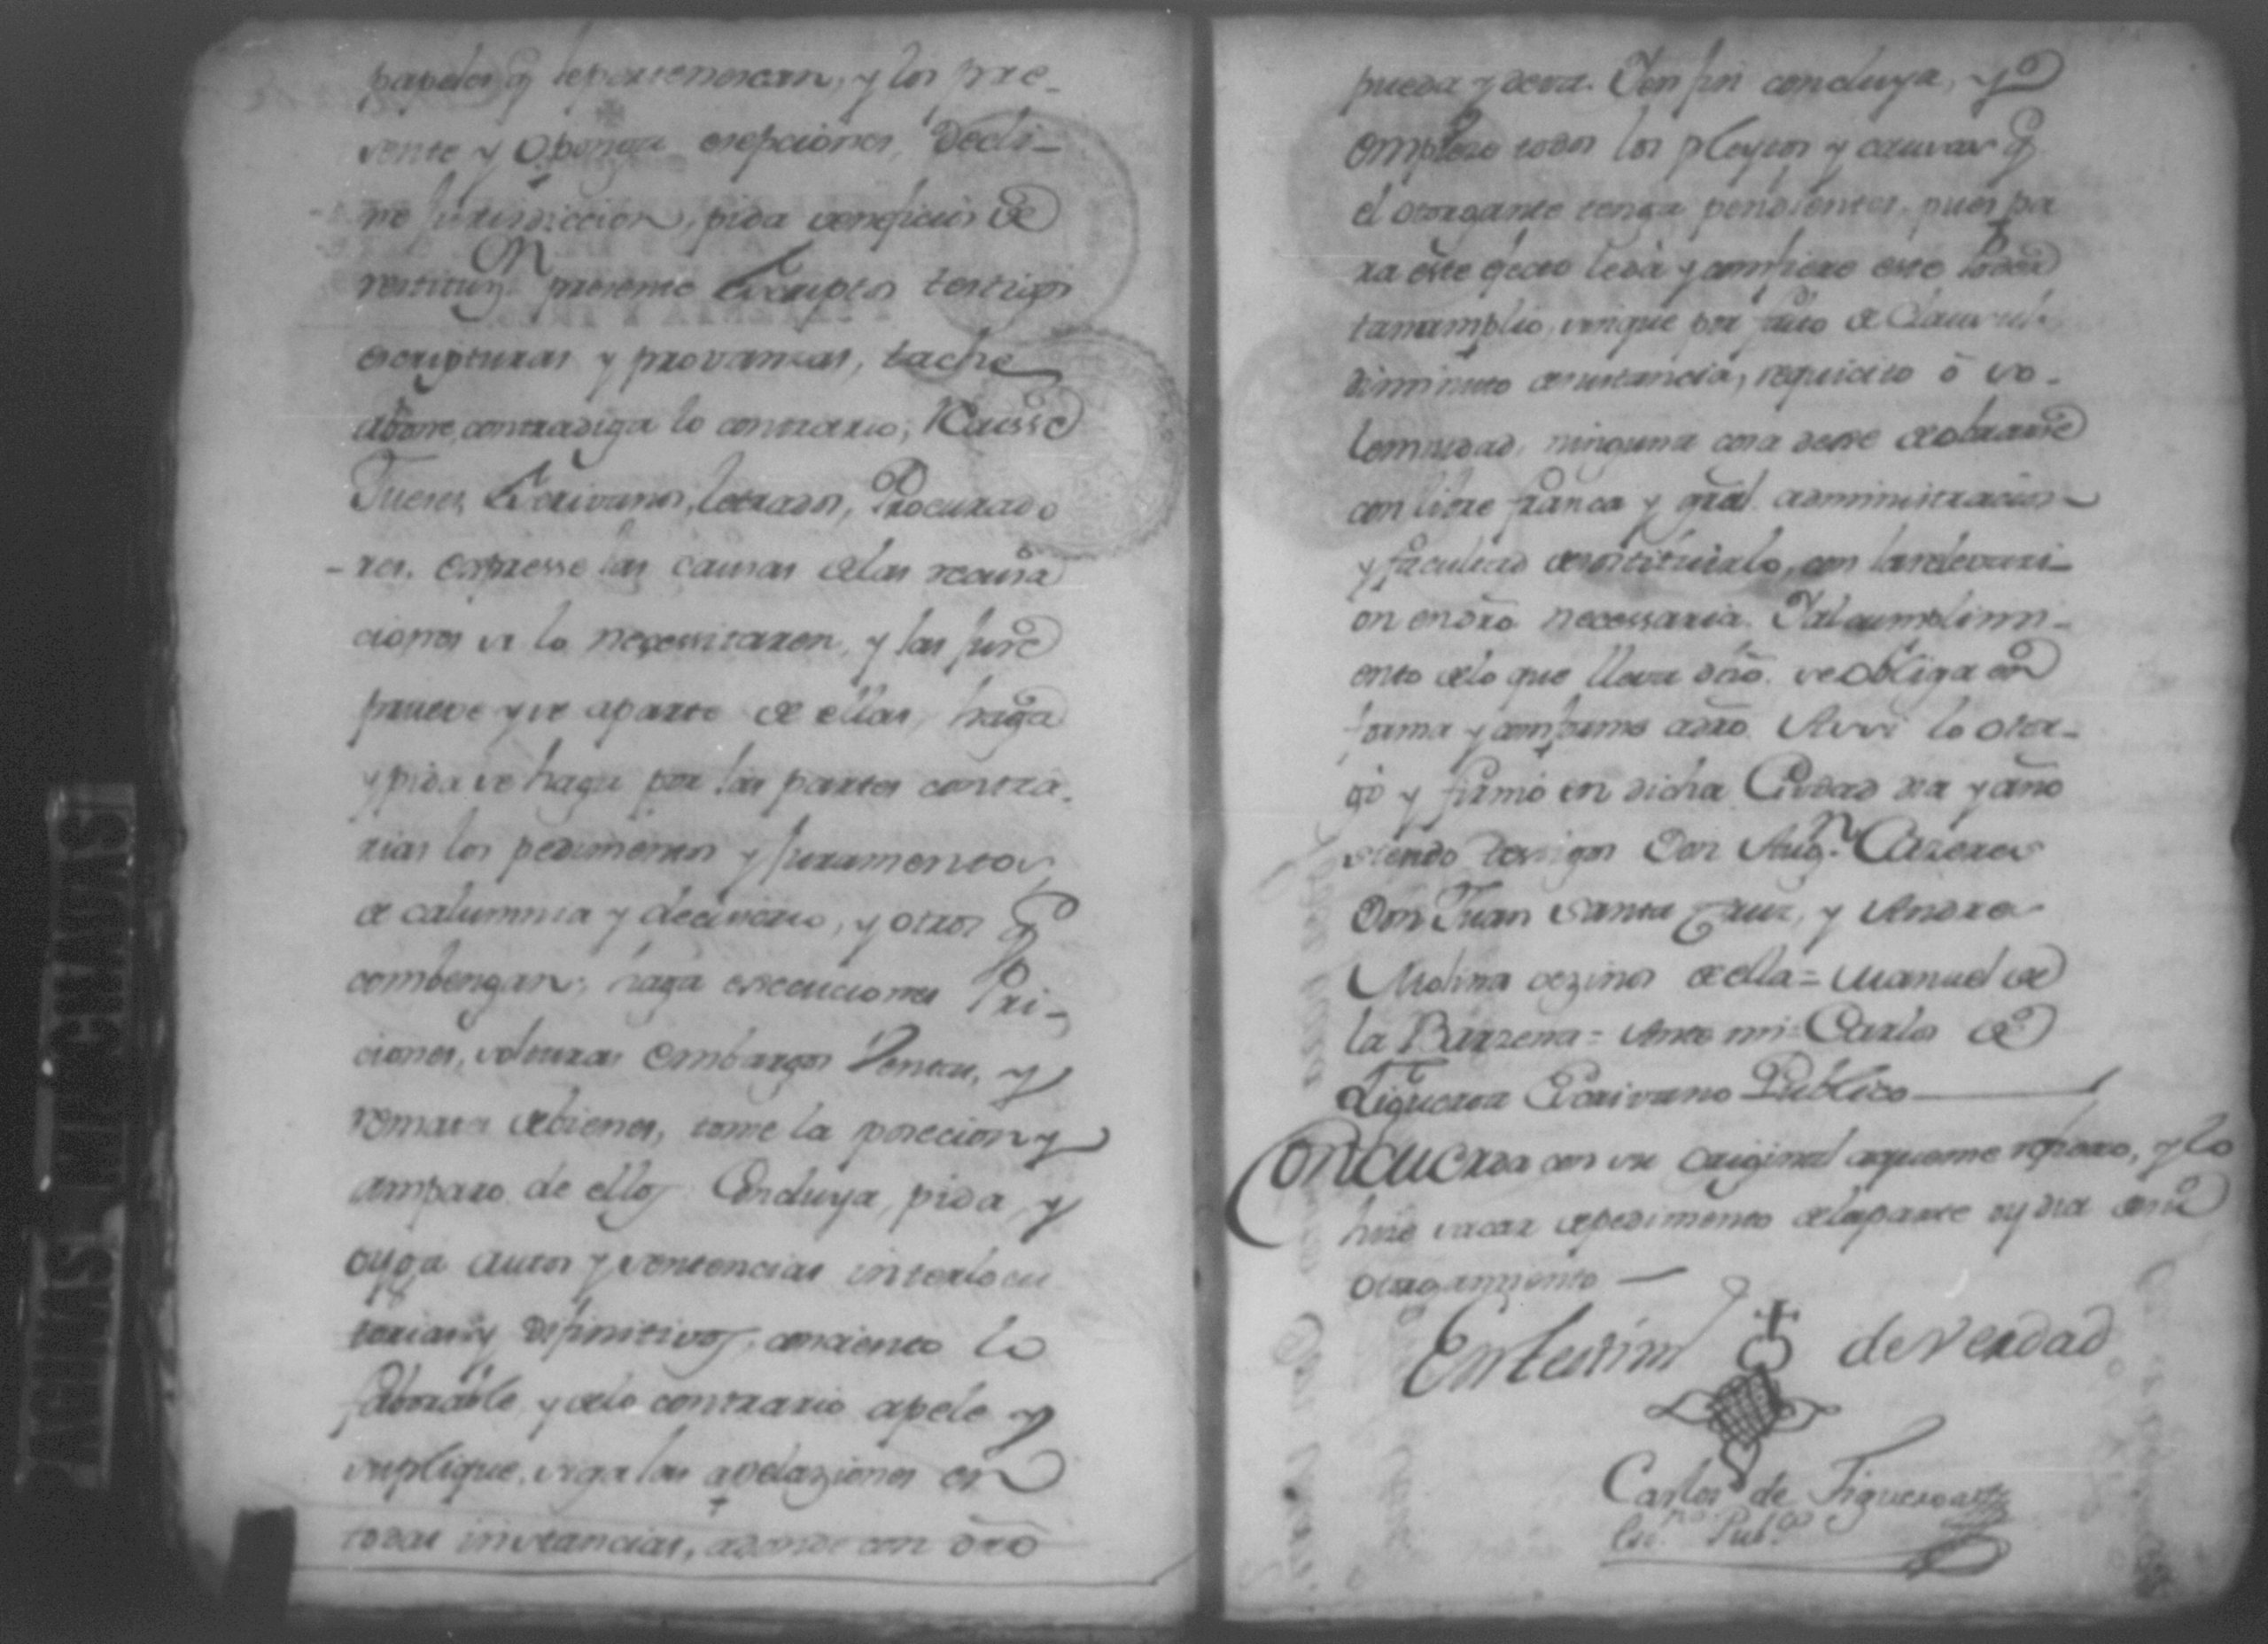 papeles q̃ le pertenescan, y los pre-
sente y oponga esepciones, Decli-
ne Jurisdiccion, pida veneficios de
restituⁿ presente Escriptos testigos
escripturas y provansas, tache
abone, contradiga lo contrario; Recusse
Jueses, Escrivanos, letrados, Procurado
- res. Expresse las causas de las recusa
ciones si lo necessitaren, y las Jure
prueve y se aparte de ellas, haga
y pida se haga por las partes contra-
rias los pedimentos y Juramentos
de calumnia y decisorio, y otros q̃
combengan; haga execuciones Pri-
ciones, solturas embargos Ventas, y
remates de bienes, tome la posecion y
amparo de ellos Concluya, pida, y
oyga autos y sentencias interlocu
torias y difinitivos, conciento lo
faborable y de lo contrario apele y
suplique, siga las apelaziones en
todas instancias, adonde con dro
pueda y deva. Y en fin concluya, y
todos los pleytos y causas q̃
el otorgante tenga pendientes, pues pa
ra este efecto le dá y confiere este Poder
tan amplio, sin que por falto de Clausul.
diminuto circunstancia, requicito ó so-
lemnidad, ninguna cosa dexe de obrarse
con libre franca y gr̃al administracion
y facultad de sostituirlo, con la relevaci-
on en dr̃o necessaria. Y al cumplimi-
ento de lo que lleva dho. se obliga en
forma y conforme a dr̃o Assi lo otor-
gó y firmó en dicha Ciudad dia y año
siendo testigos Don Augⁿ Cazeres
Don Juan Santa Cruz, y Andres
Molina vezinos de ella = Manuel de
la Barzena = Ante mi = Carlos de
Figueroa Escrivano Publico
Concuerda con su original a que me refiero, y lo
hise sacar de pedimento de la parte oy dia de su
otorgamiento
En testim^o de verdad
Carlos de Figueroa
Esc.^no Pub.^co
PAGINAS MANCHADAS